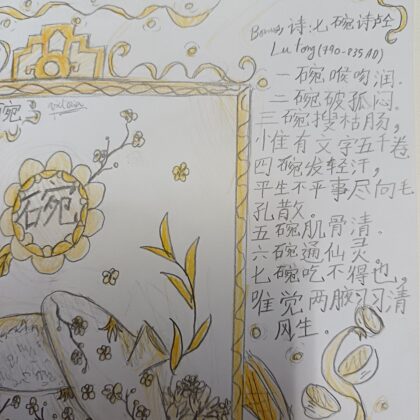 Bonus 诗:七碗诗卢仝
Lu Tong (790-835 AD)
一碗喉吻润.
二碗破孤闷.
三碗搜枯肠,
惟有文字五千卷
四碗发轻汗,
平生不平事尽向毛
孔散。
五碗肌骨清.
六碗通仙灵.
七碗吃不得也,
唯觉两腋习习清
风生.
碗
碗